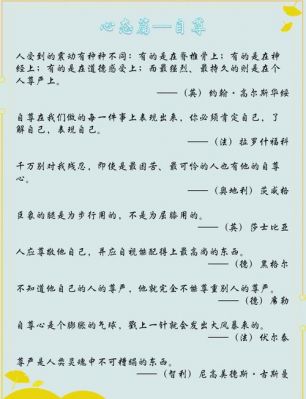 心态篇—自尊
人受到的震动有种种不同：有的是在脊椎骨上；有的是在神
经上；有的是在道德感受上；而最强烈、最持久的则是在个
人尊严上。
——（英）约翰·高尔斯华绥
自尊在我们做的每一件事上表现出来，你必须肯定自己，了
解自己，表现自己。
——（法）拉罗什福科
千万别对我残忍，即使是最困苦、最可怜的人也有他的自尊
心。
——（奥地利）茨威格
臣象的腿是为步行用的，不是为屈膝用的。
——（英）莎士比亚
人应尊敬他自己，并应自视能配得上最高尚的东西。
——（德）黑格尔
不知道他自己的人的尊严，他就完全不能尊重别人的尊严。
——（德）席勒
自尊心是个膨胀的气球，戳上一针就会发出大风暴来的。
——（法）伏尔泰
尊严是人类灵魂中不可糟蹋的东西。
——（智利）尼高美德斯·古斯曼